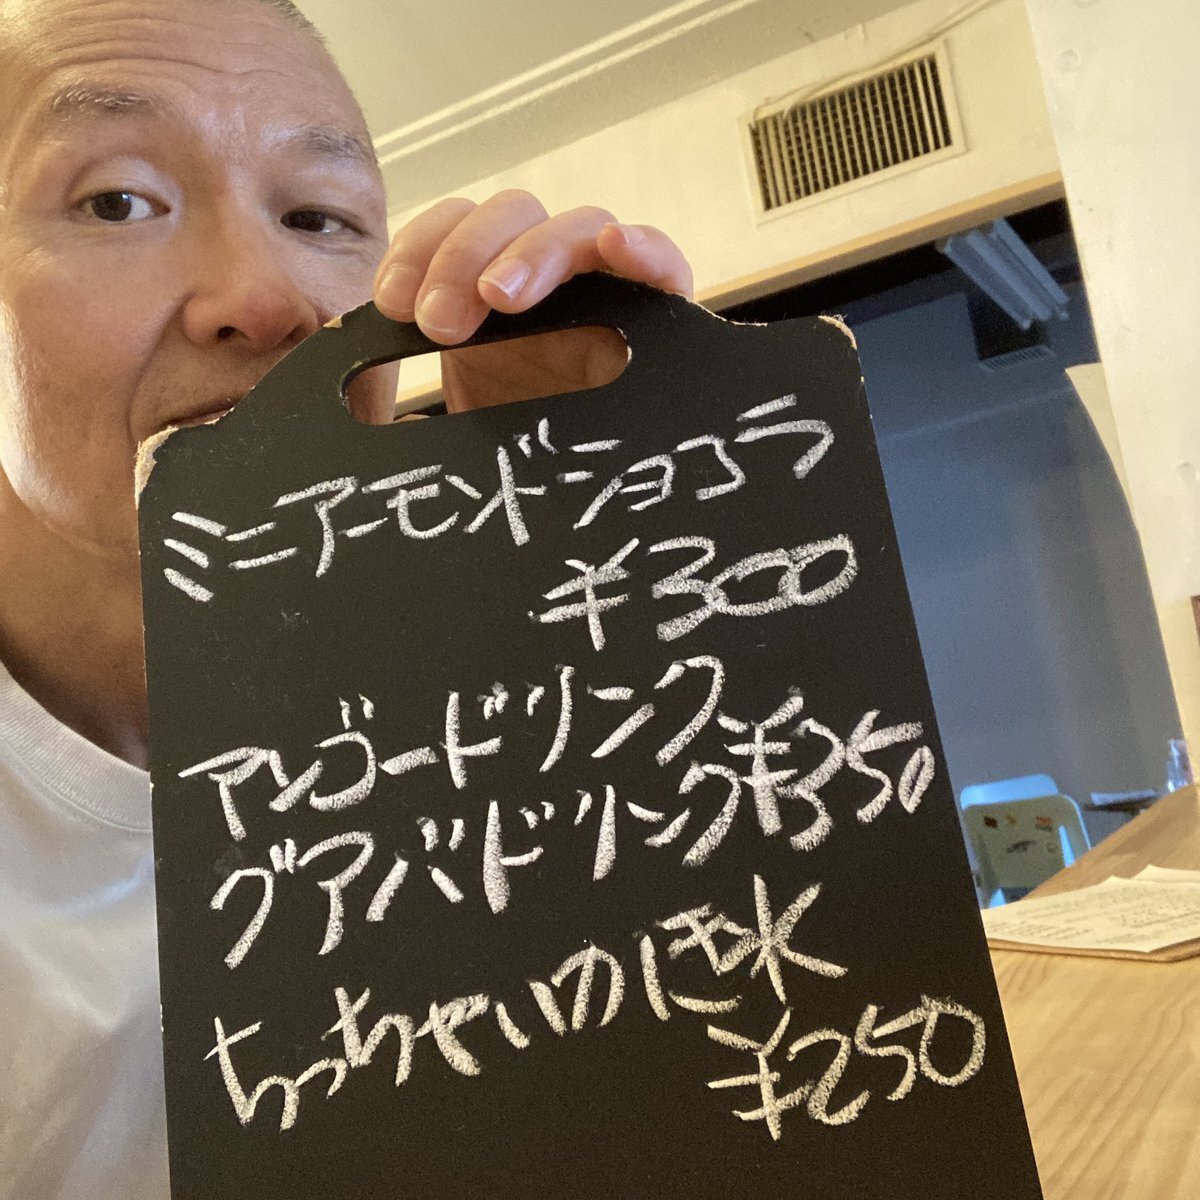 ミニアーモンドショコラ
¥300
マンゴードリンク
グアバドリンク¥350
ちっちゃいの
¥250